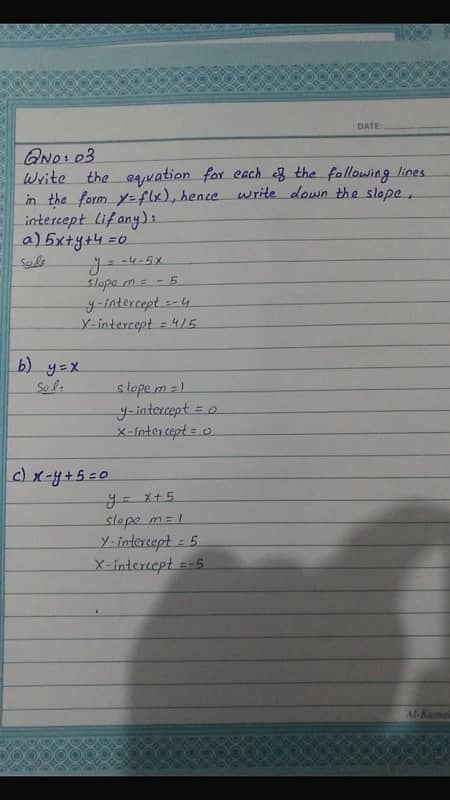 DATE:
QNO: 03
Write the equation for each of the following lines
in the form y=f(x), hence write down the slope,
intercept (if any):
a) 5x+y+4=0
Sol:
y = -4-5x
slope m = -5
y-intercept =-4
X-intercept = 4/5
b) y=x
Sol:
slope m = 1
y-intercept = 0
x-intercept = 0
c) x-y+5=0
y = x+5
slope m= 1
Y-intercept = 5
X-intercept =-5